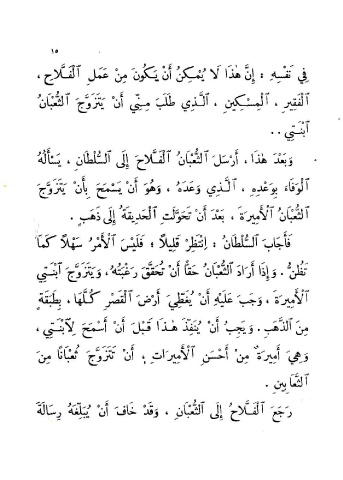 ١٥
فِي نَفْسِهِ : إِنَّ هٰذَا لَا يُمْكِنُ أَنْ يَكُونَ مِنْ عَمَلِ ٱلْفَلَّاحِ ،
ٱلْفَقِيرِ ، ٱلْمِسْكِينِ ، ٱلَّذِي طَلَبَ مِنِّي أَنْ يَتَزَوَّجَ ٱلثُّعْبَانُ
ٱبْنَتِي ..
وَبَعْدَ هٰذَا ، أَرْسَلَ ٱلثُّعْبَانُ ٱلْفَلَّاحَ إِلَى ٱلسُّلْطَانِ ، يَسْأَلُهُ
ٱلْوَفَاءَ بِوَعْدِهِ ، ٱلَّذِي وَعَدَهُ ، وَهُوَ أَنْ يَسْمَحَ بِأَنْ يَتَزَوَّجَ
ٱلثُّعْبَانُ ٱلْأَمِيرَةَ ، بَعْدَ أَنْ تَحَوَّلَتِ ٱلْحَدِيقَةُ إِلَى ذَهَبٍ .
فَأَجَابَ ٱلسُّلْطَانُ : اِنْتَظِرْ قَلِيلًا ؛ فَلَيْسَ ٱلْأَمْرُ سَهْلًا كَمَا
تَظُنُّ . وَإِذَا أَرَادَ ٱلثُّعْبَانُ حَقًّا أَنْ تُحَقَّقَ رَغْبَتُهُ ، وَيَتَزَوَّجَ ٱبْنَتِي
ٱلْأَمِيرَةَ ، وَجَبَ عَلَيْهِ أَنْ يُغَطِّيَ أَرْضَ ٱلْقَصْرِ كُلَّهَا ، بِطَبَقَةٍ
مِنَ ٱلذَّهَبِ . وَيَجِبُ أَنْ يُنَفَّذَ هٰذَا قَبْلَ أَنْ أَسْمَحَ لِٱبْنَتِي ،
وَهِيَ أَمِيرَةٌ مِنْ أَحْسَنِ ٱلْأَمِيرَاتِ ، أَنْ تَتَزَوَّجَ ثُعْبَانًا مِنَ
ٱلثَّعَابِينِ .
رَجَعَ ٱلْفَلَّاحُ إِلَى ٱلثُّعْبَانِ ، وَقَدْ خَافَ أَنْ يُبَلِّغَهُ رِسَالَةَ